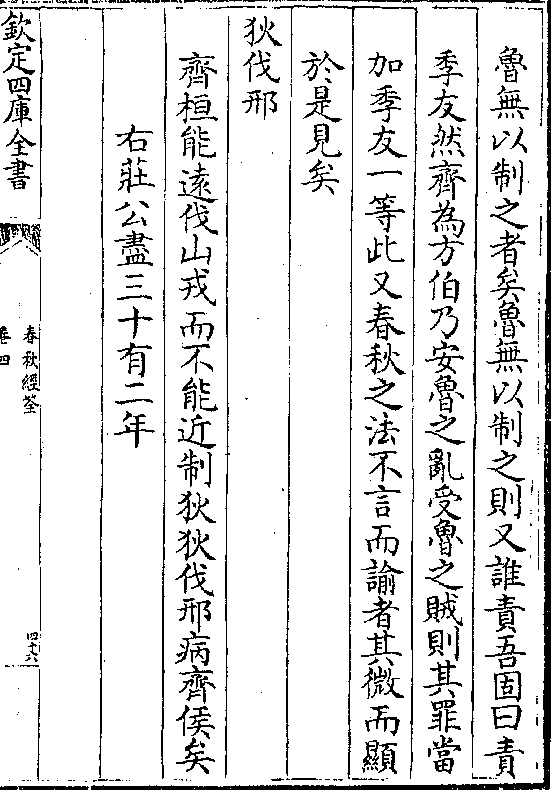 魯無以制之者矣魯無以制之則又誰責吾固曰責
季友然齊為方伯乃安魯之亂受魯之賊則其罪當
加季友一等此又春秋之法不言而諭者其微而顯
於是見矣
狄伐邢
齊桓能遠伐山戎而不能近制狄狄伐邢病齊侯矣
右莊公盡三十有二年
欽定四庫全書
春秋經筌
卷四
四十六